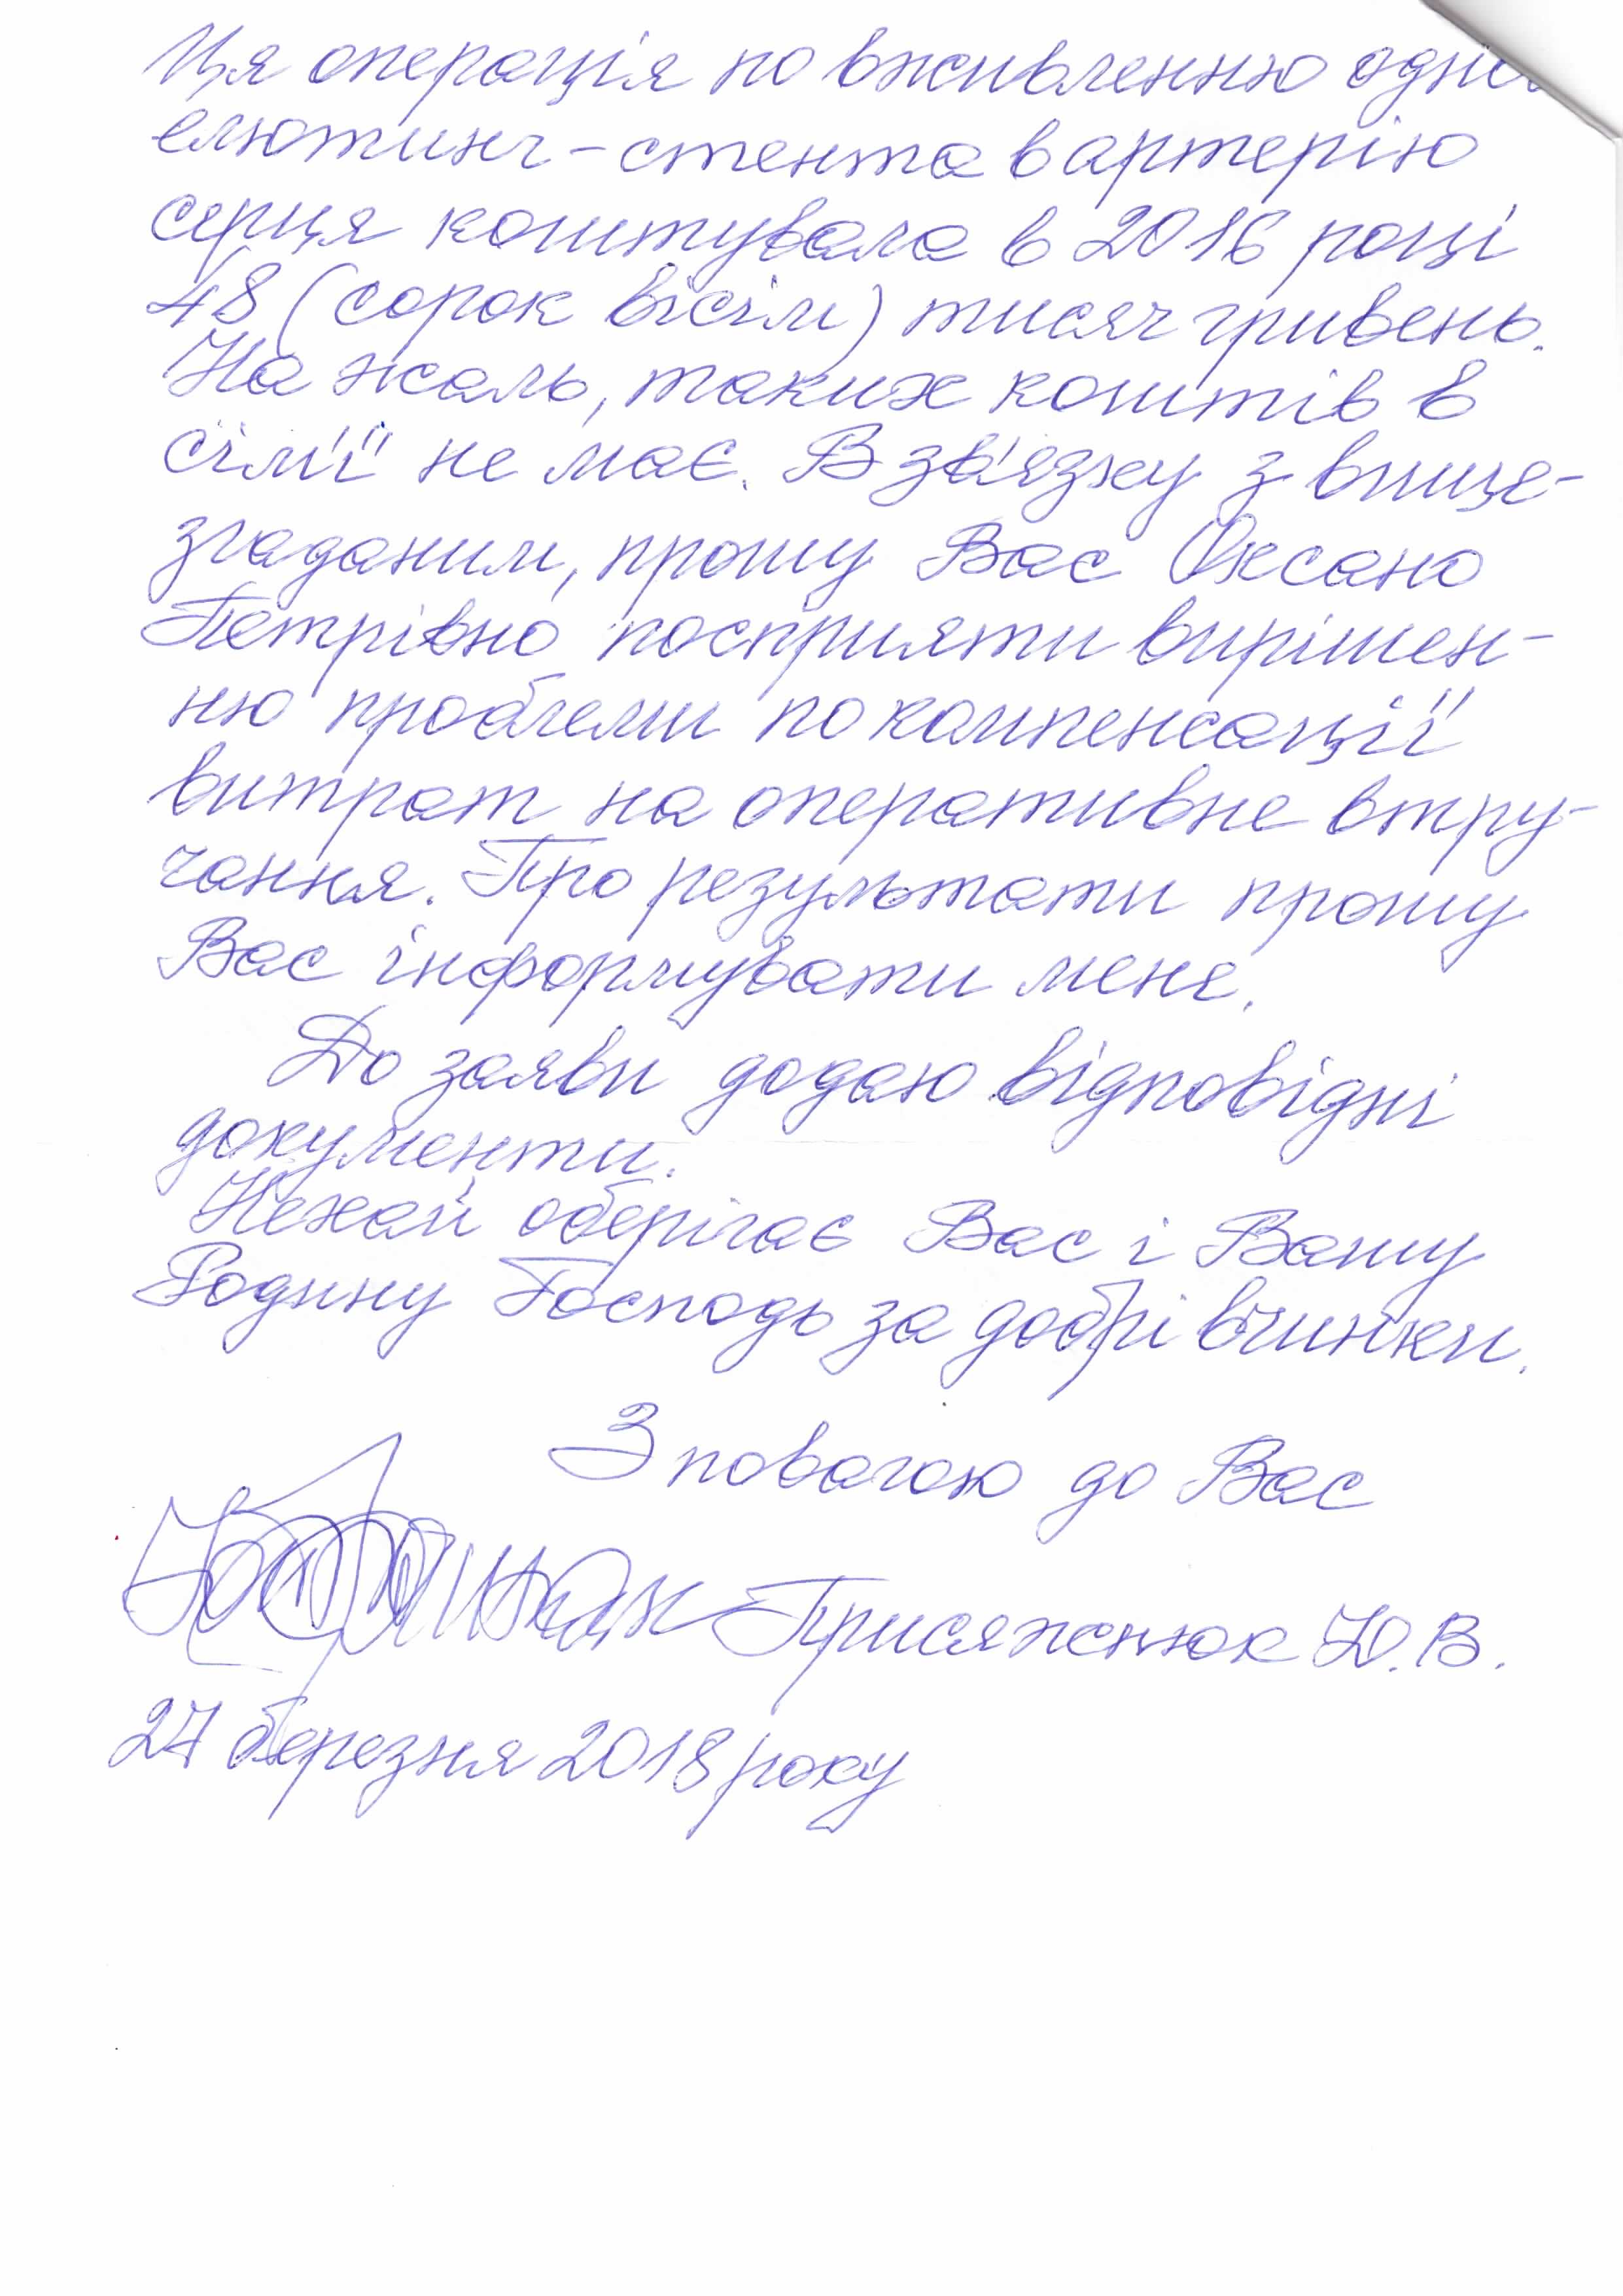 Ця операція по вживленню
елютинг-стента в артерію
серця коштувала в 2016 році
48 (сорок вісім) тисяч гривень.
На жаль, таких коштів в
сім'ї не має. В зв'язку з вище-
згаданим, прошу Вас Оксано
Петрівно посприяти вирішен-
ню проблеми по компенсації
витрат на оперативне втру-
чання. Про результати прошу
Вас інформувати мене.
До заяви додаю відповідні
документи.
Нехай оберігає Вас і Вашу
Родину Господь за добрі вчинки.
З повагою до Вас
Присяжнюк Ю.В.
27 березня 2018 року